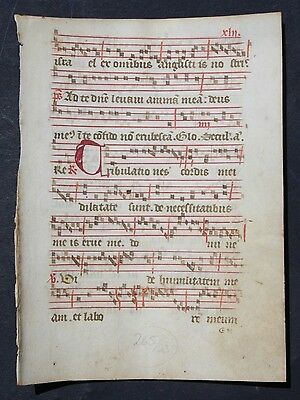 xlii.
isra el ex omnibus angustiis no stri
ps Ad te dñe levavi animā mea: deus
me9 ī te cōfido nō erubescā. Glo. Secul. a.
Re R Tribulatio nes cordis mei
dilatate sunt de necessitatibus
me is erue me do mi ne
V. Vi de humilitatem me
am et labo re meum
265